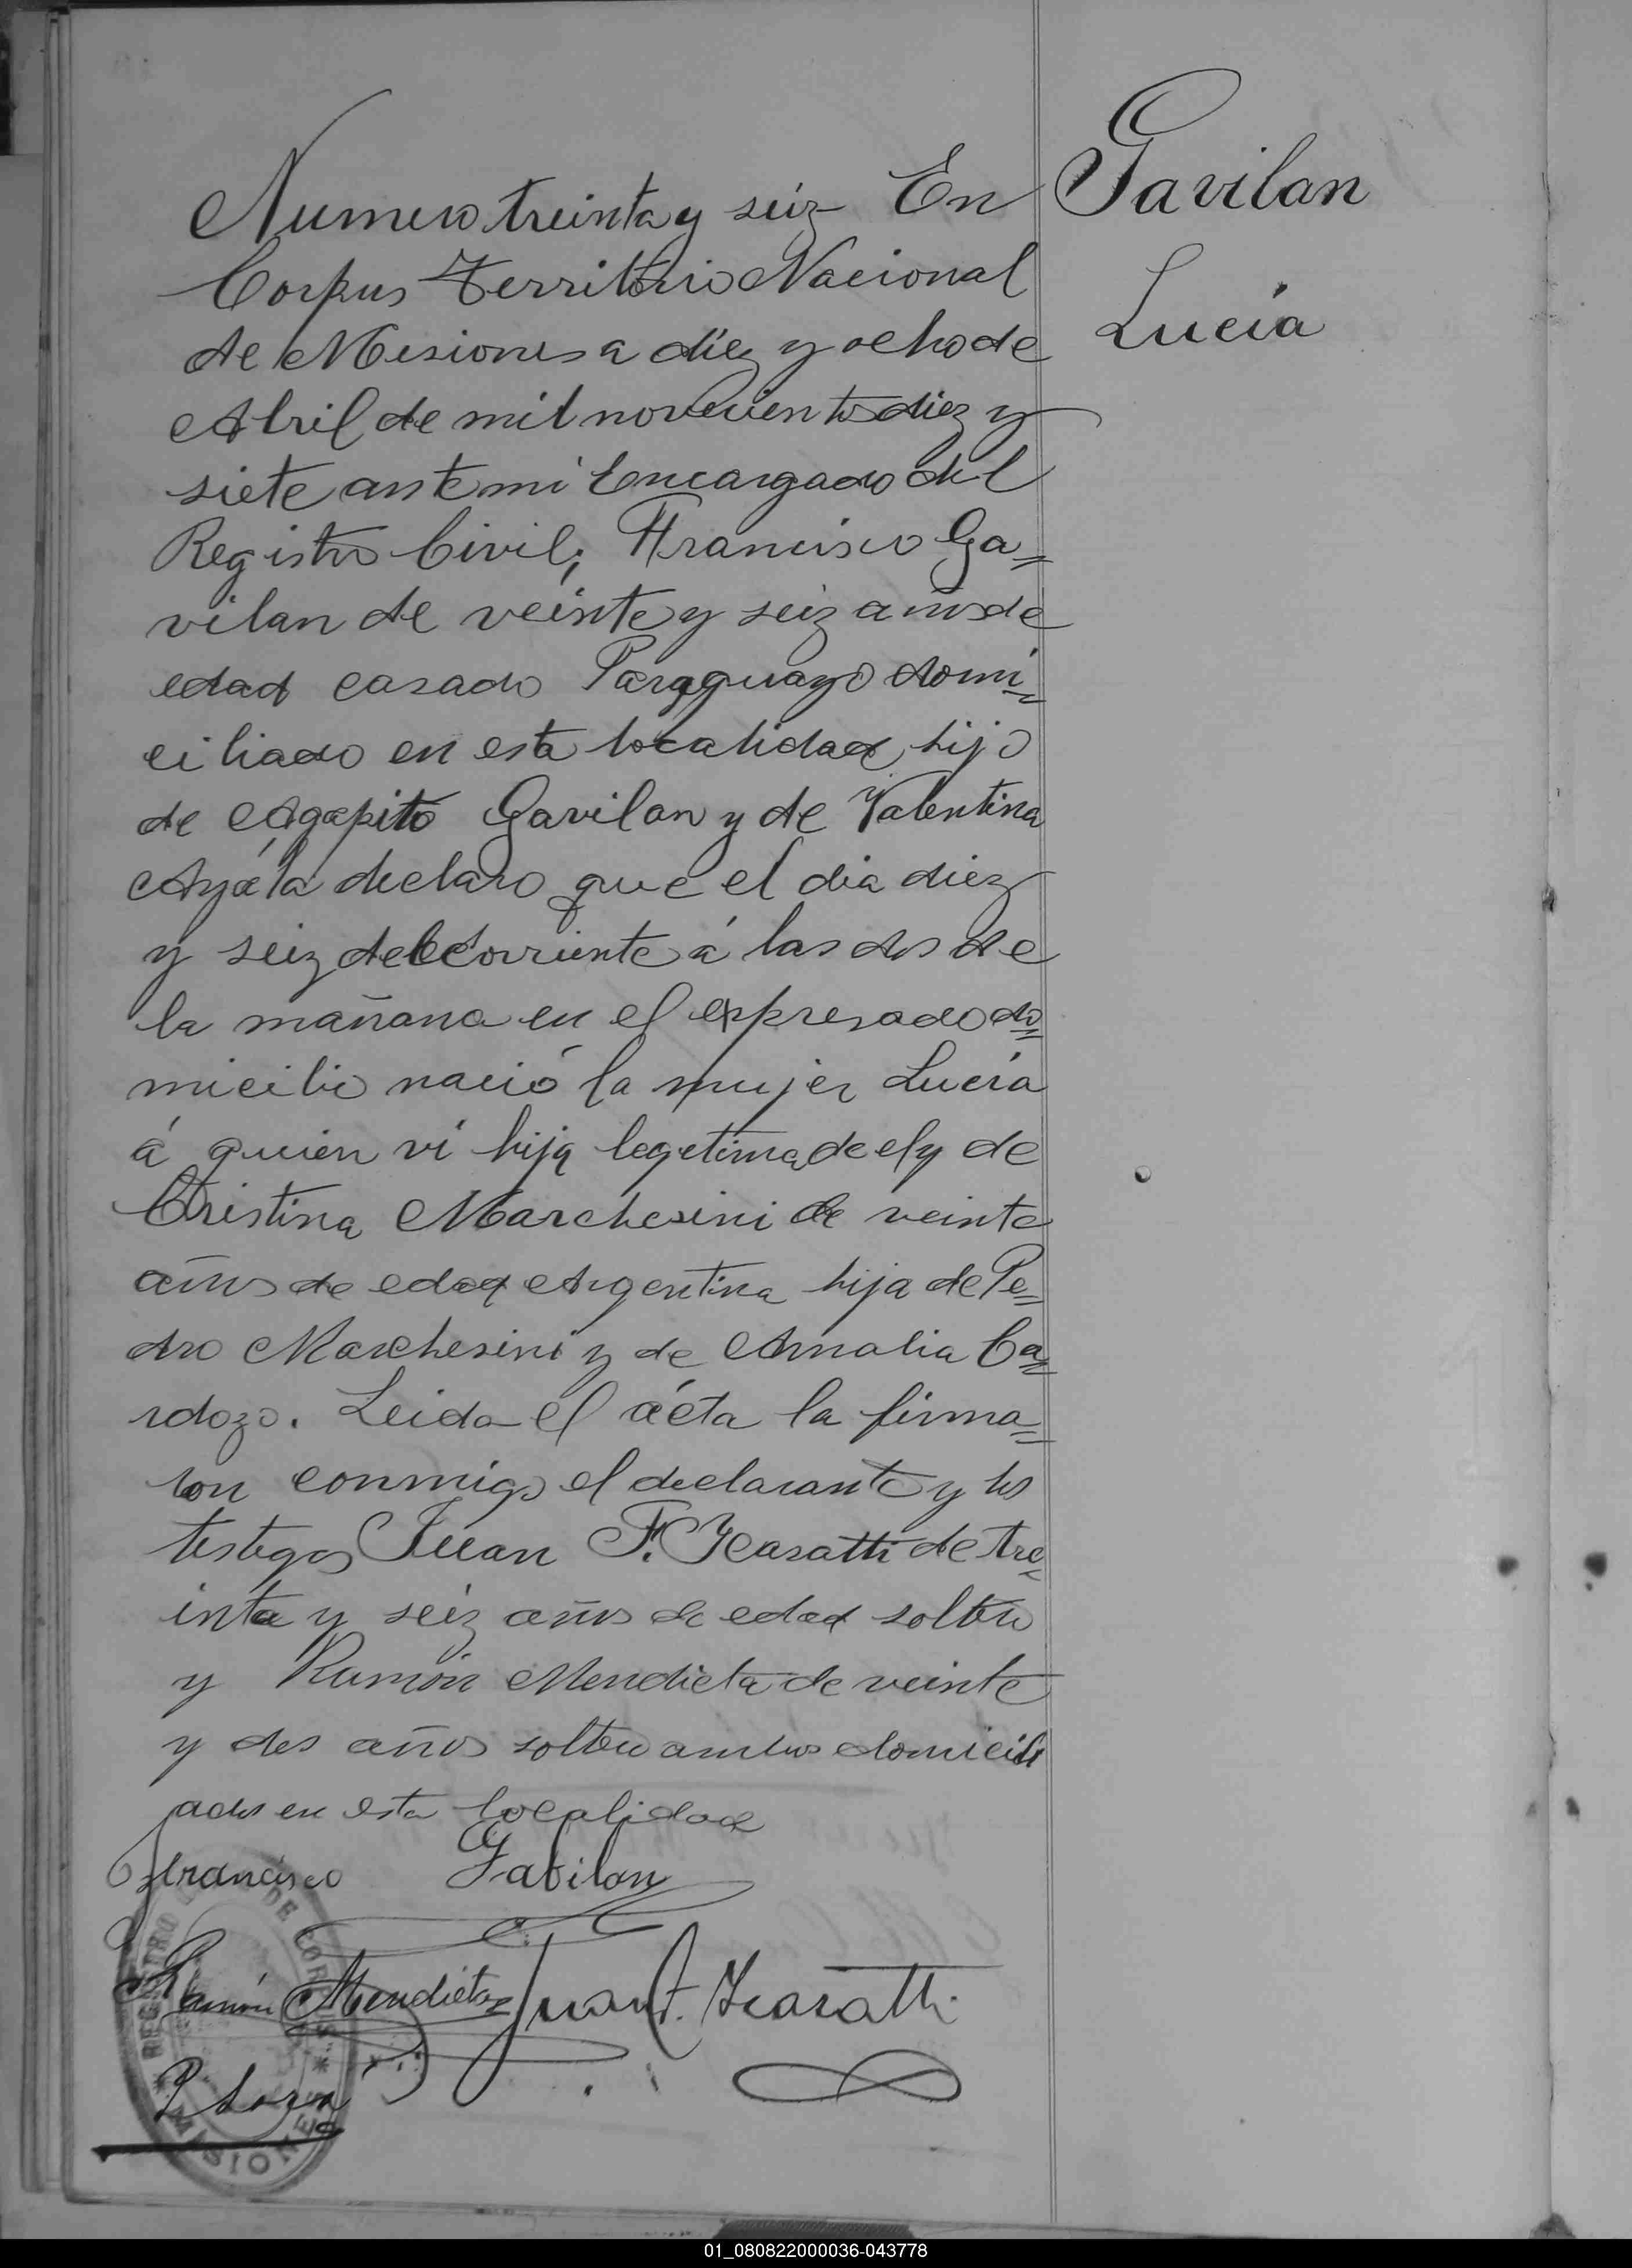 Gavilan
Lucia
Numero treinta y seiz En
Corpus Territorio Nacional
de Misiones a diez y ocho de
Abril de mil novecientos diez y
siete ante mi Encargado del
Registro Civil, Francisco Ga=
vilan de veinte y seiz años de
edad casado Paraguayo domi=
ciliado en esta localidad, hijo
de Agapito Gavilan y de Valentina
Ayála declaro que el dia diez
y seiz del corriente á las dos de
la mañana en el expresado do=
micilio nació la mujer Lucia
á quien vi hija legetima de el y de
Cristina Marchesini de veinte
años de edad Argentina hija de Pe=
dro Marchesini y de Amalia Ca=
rdozo. Leida el acta la firma=
ron conmigo el declarante y los
testigos Juan F. de tre=
inta y seiz años de edad soltero
y Ramón Mendieta de veinte
y dos años soltero ambos domicili
ados en esta localidad
Francisco Gabilan
Ramón Mendieta Juan F.
REGISTRO DE CORPUS
* MISIONES *
01_080822000036-043778